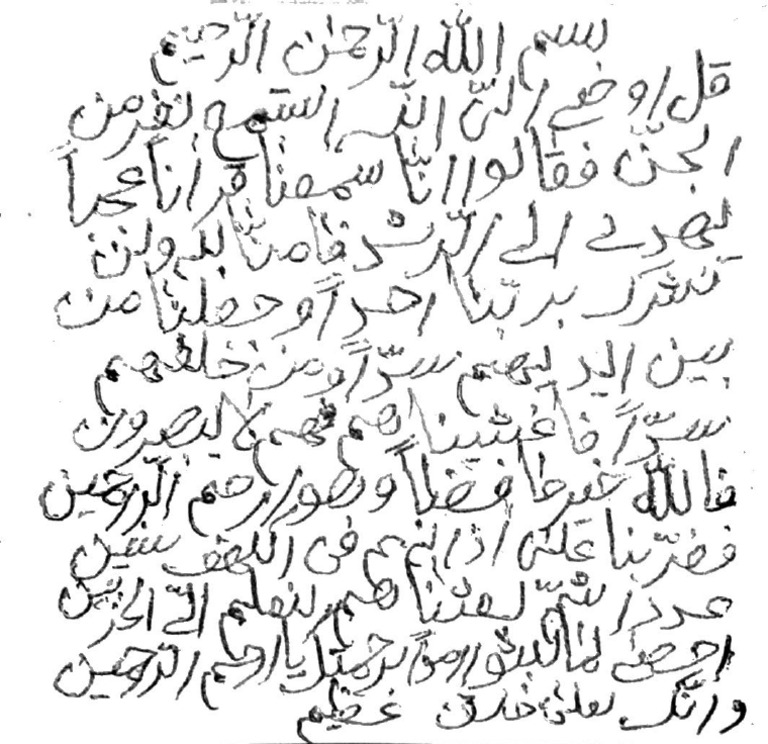 بسم الله الرّحمٰن الرّحيم
قل اوحى الىّ انّه استمع نفر من
الجنّ فقالوا انّا سمعنا قرأناً عجباً
يهدى الى الرّشد فامنّا به ولن
نشرك بربّنا احداً وجعلنا من
بين ايديهم سدّاً ومن خلفهم
سدّاً فاغشيناهم فهم لا يبصرون
فالله خير حافضاً وهوارحم الرّحمين
فضربنا على اذانهم فى الكهف سنين
عدداً ثمّ بعثناهم لنعلم ايّ الحزبين
احصى لما لبثوا امداً برحمتك يا ارحم الرّحمين
وانّك لعلىٰ خلق عظيم